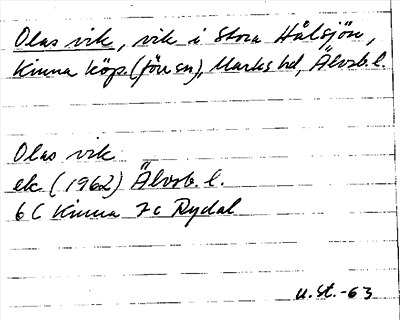 Olas vik, vik i Stora Hålsjön,
Kinna köp. (förr sn), Marks hd, Älvsb. l.
Olas vik
ek. (1962) Älvsb. l.
6 C Kinna 7c Rydal
U. St. -63